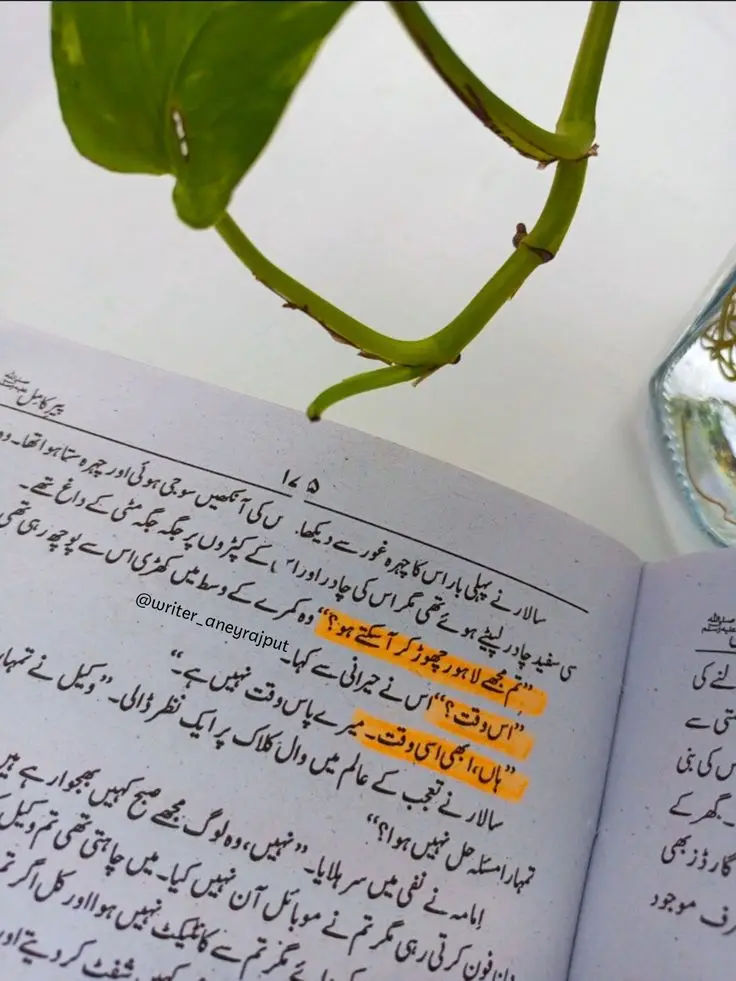 پیر کامل ﷺ
۱۷۵
سالار نے پہلی بار اس کا چہرہ غور سے دیکھا۔ س کی آنکھیں سوجی ہوئی اور چہرہ ستا ہوا تھا۔ وہ
سی سفید چادر لپیٹے ہوئے تھی مگر اس کی چادر اور اس کے کپڑوں پر جگہ جگہ مٹی کے داغ تھے۔
"تم مجھے لاہور چھوڑ کر آ سکتے ہو؟" وہ کمرے کے وسط میں کھڑی اس سے پوچھ رہی تھی
"اس وقت؟" اس نے حیرانی سے کہا۔
"ہاں، ابھی اسی وقت۔ میرے پاس وقت نہیں ہے۔"
سالار نے تعجب کے عالم میں وال کلاک پر ایک نظر ڈالی۔ "وکیل نے تمہا
تمہارا مسئلہ حل نہیں ہوا؟"
امامہ نے نفی میں سر ہلایا۔ "نہیں، وہ لوگ مجھے صبح کہیں بھجوا رہے ہیں
فون کرتی رہی مگر تم نے موبائل آن نہیں کیا۔ میں چاہتی تھی تم وکیل
مگر تم سے کانٹیکٹ نہیں ہوا اور کل اگر تم
کہیں شفٹ کر دیتے اور
@writer_aneyrajput
ﷺ
لنے کی
تی سے
س کی بنی
۔ گھر کے
گارڈز بھی
رف موجود